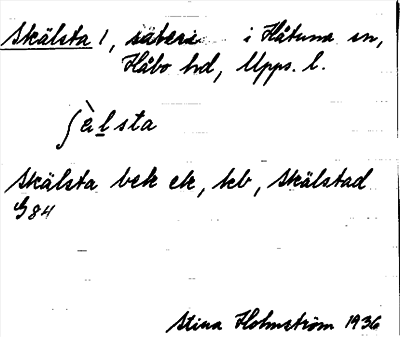 Skälsta 1, säteri i Håtuna sn,
Håbo hd, Upps. l.
ʃὲlsta
Skälsta bek ek, kb, Skälstad
G 84
Stina Holmström 1936